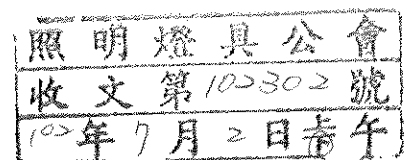 照明燈具公會
收文第102302號
102年7月2日午